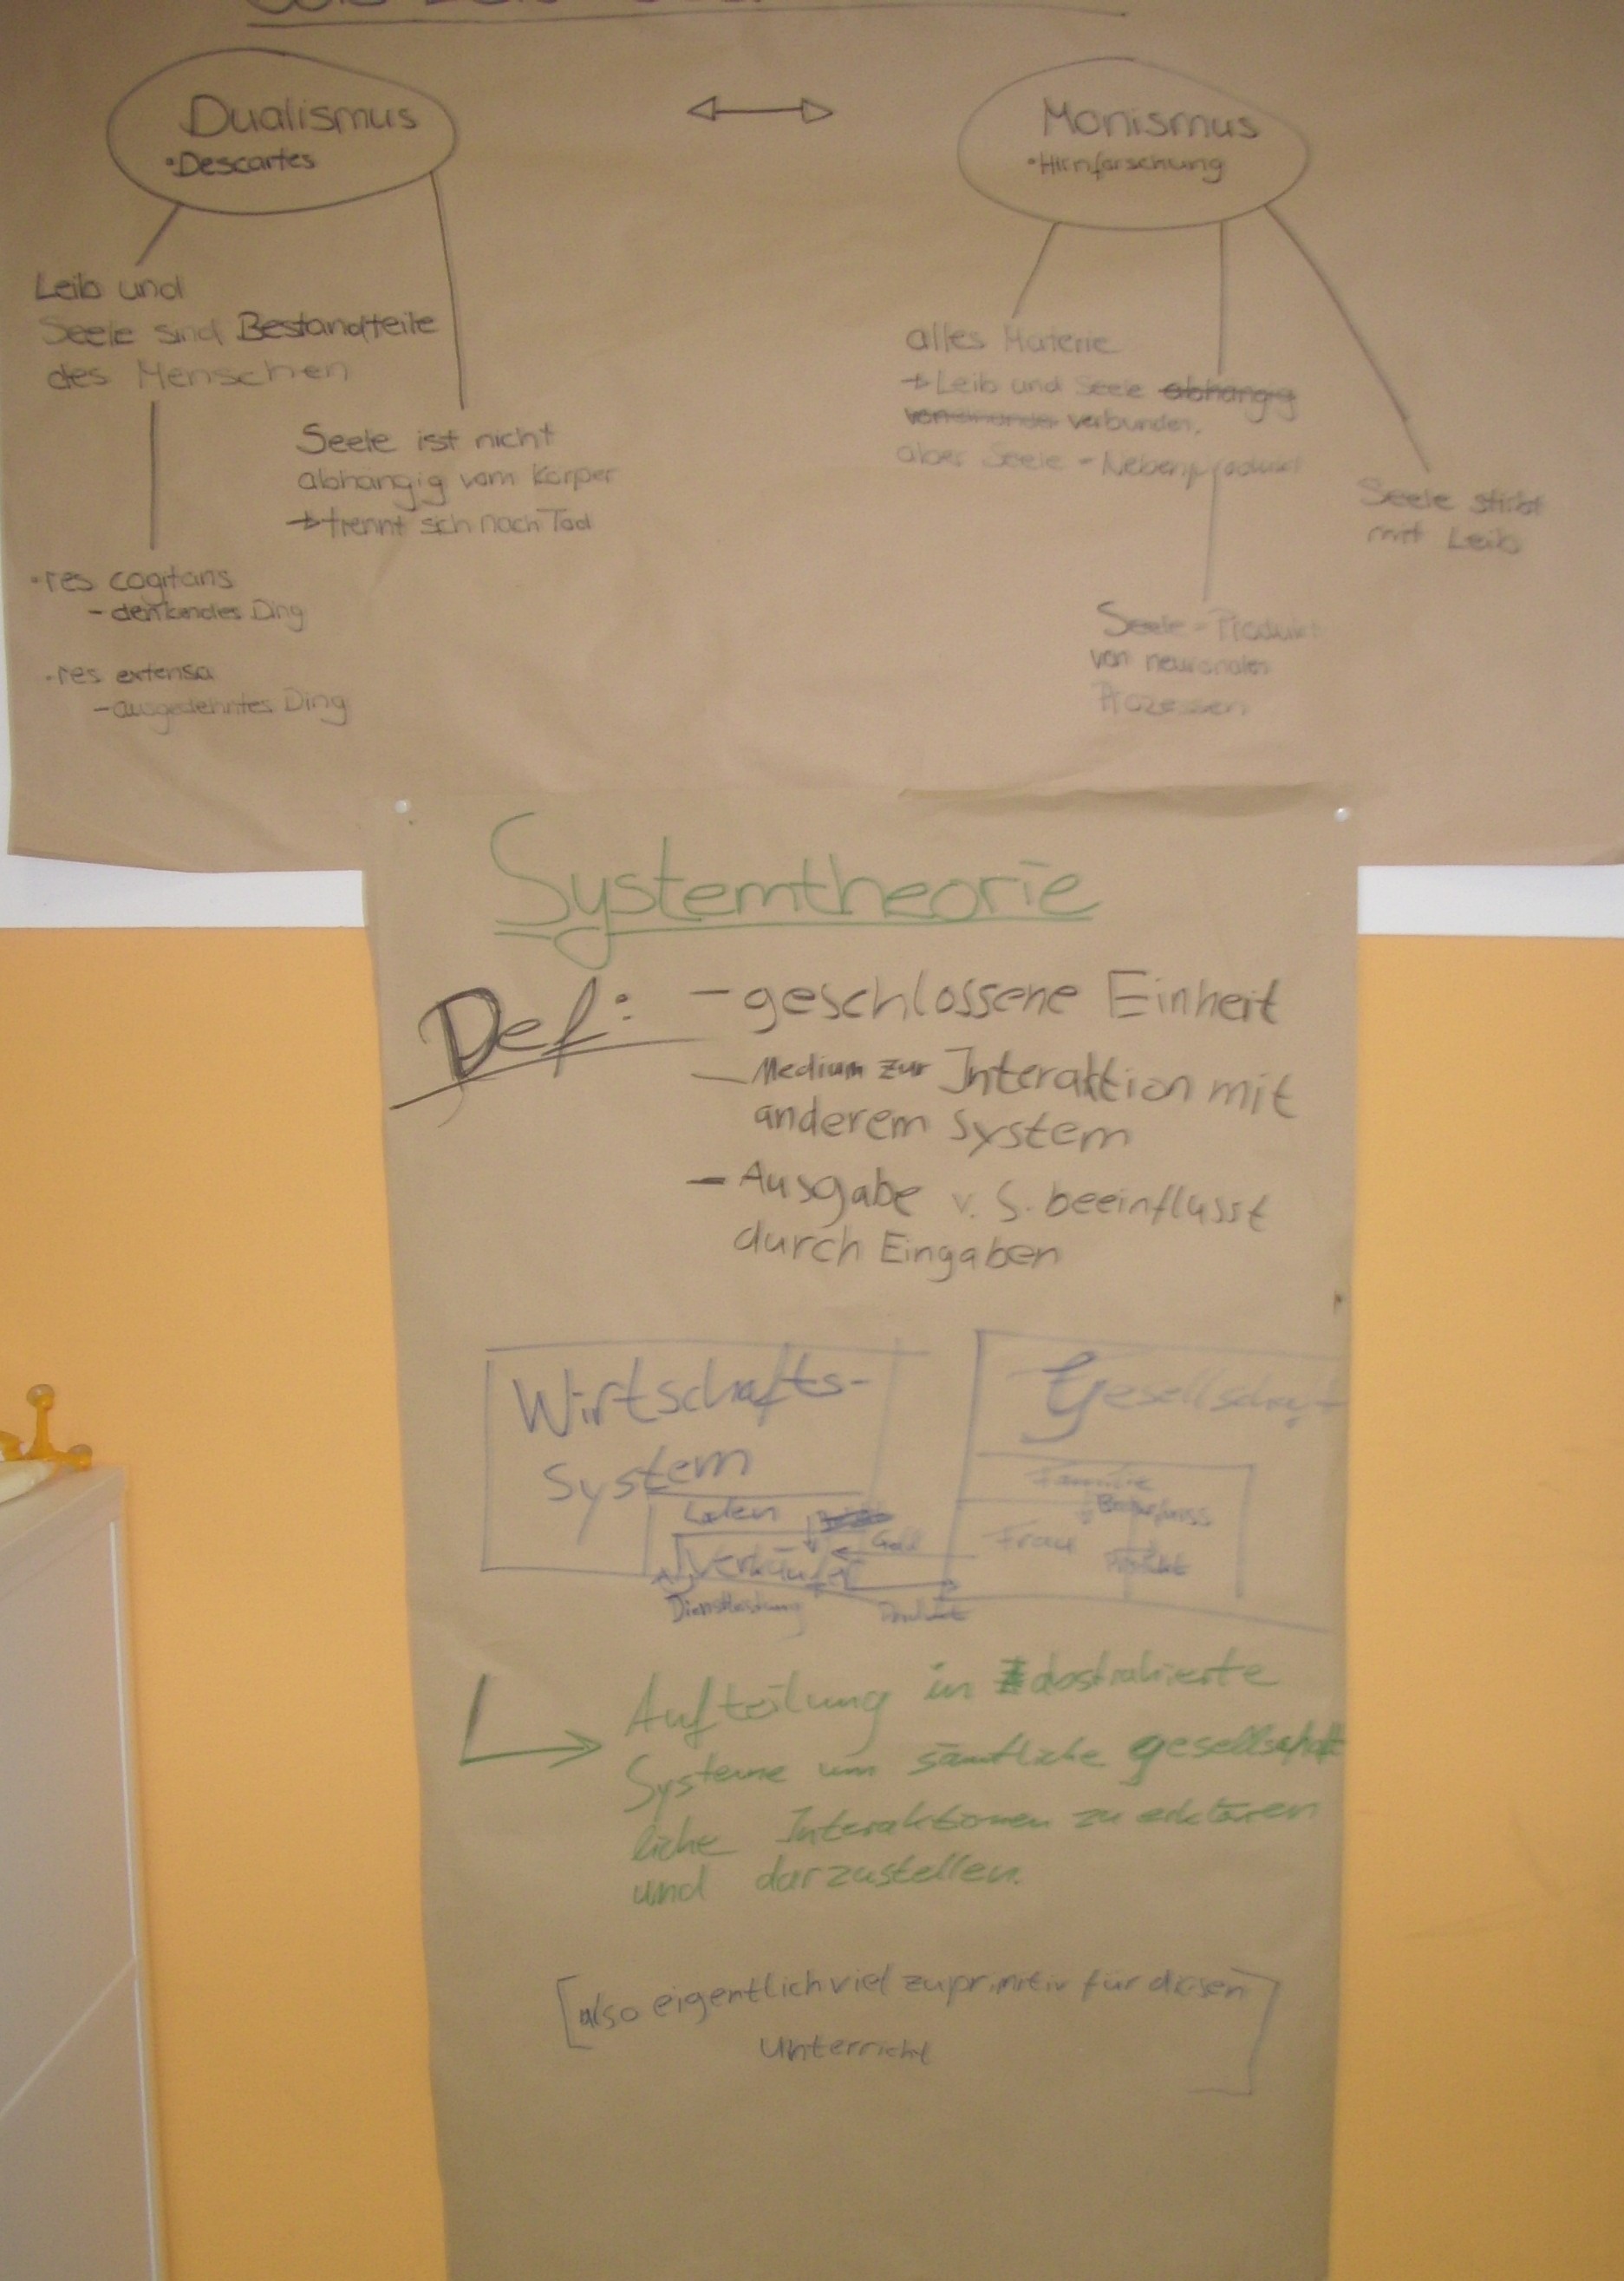 Dualismus
•Descartes
Monismus
•Hirnforschung
Leib und
Seele sind Bestandteile
des Menschen
Seele ist nicht
abhängig vom Körper
→trennt sich nach Tod
•res cogitans
-denkendes Ding
•res extensa
-ausgedehntes Ding
alles Materie
→Leib und Seele abhängig
voneinander verbunden,
aber Seele = Nebenprodukt
Seele stirbt
mit Leib
Seele = Produkt
von neuronalen
Prozessen
Systemtheorie
Def: - geschlossene Einheit
- Medium zur Interaktion mit
anderem System
- Ausgabe v. S. beeinflusst
durch Eingaben
Wirtschafts-
System
Gesellschaft
Laden
Verkäufer
Dienstleistung
Geld
Produkt
Familie
Bedürfniss
Frau
Produkt
Aufteilung in abstrahierte
Systeme um sämtliche gesellschaft
liche Interaktionen zu erklären
und darzustellen.
[also eigentlich viel zu primitiv für diesen
Unterricht]